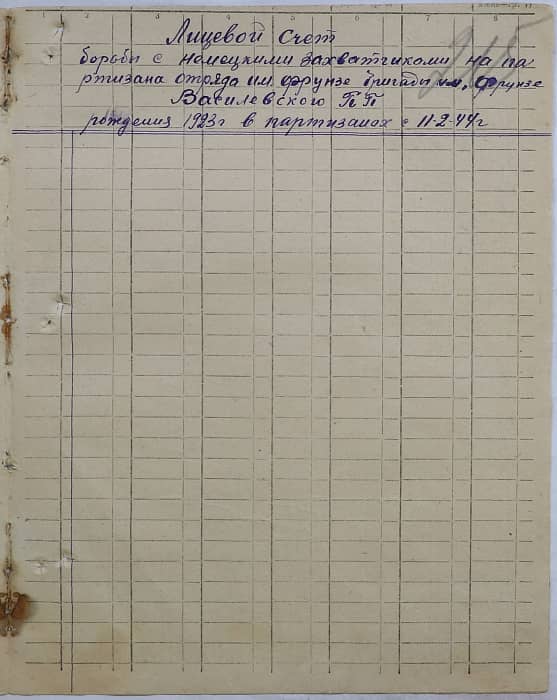 Лицевой счет
борьбы с немецкими захватчиками на па
ртизана отряда им. Фрунзе бригады им. Фрунзе
Василевского П П
рождения 1923 г в партизанах с 11-2-44 г